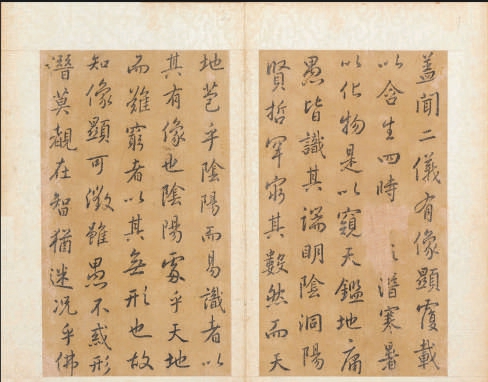 蓋聞二儀有像顯覆載
以含生四時潛寒暑
以化物是以窺天鑑地庸
愚皆識其端明陰洞陽
賢哲罕窮其數然而天
地苞乎陰陽而易識者以
其有像也陰陽處乎天地
而難窮者以其無形也故
知像顯可徵雖愚不惑形
潛莫覩在智猶迷况乎佛